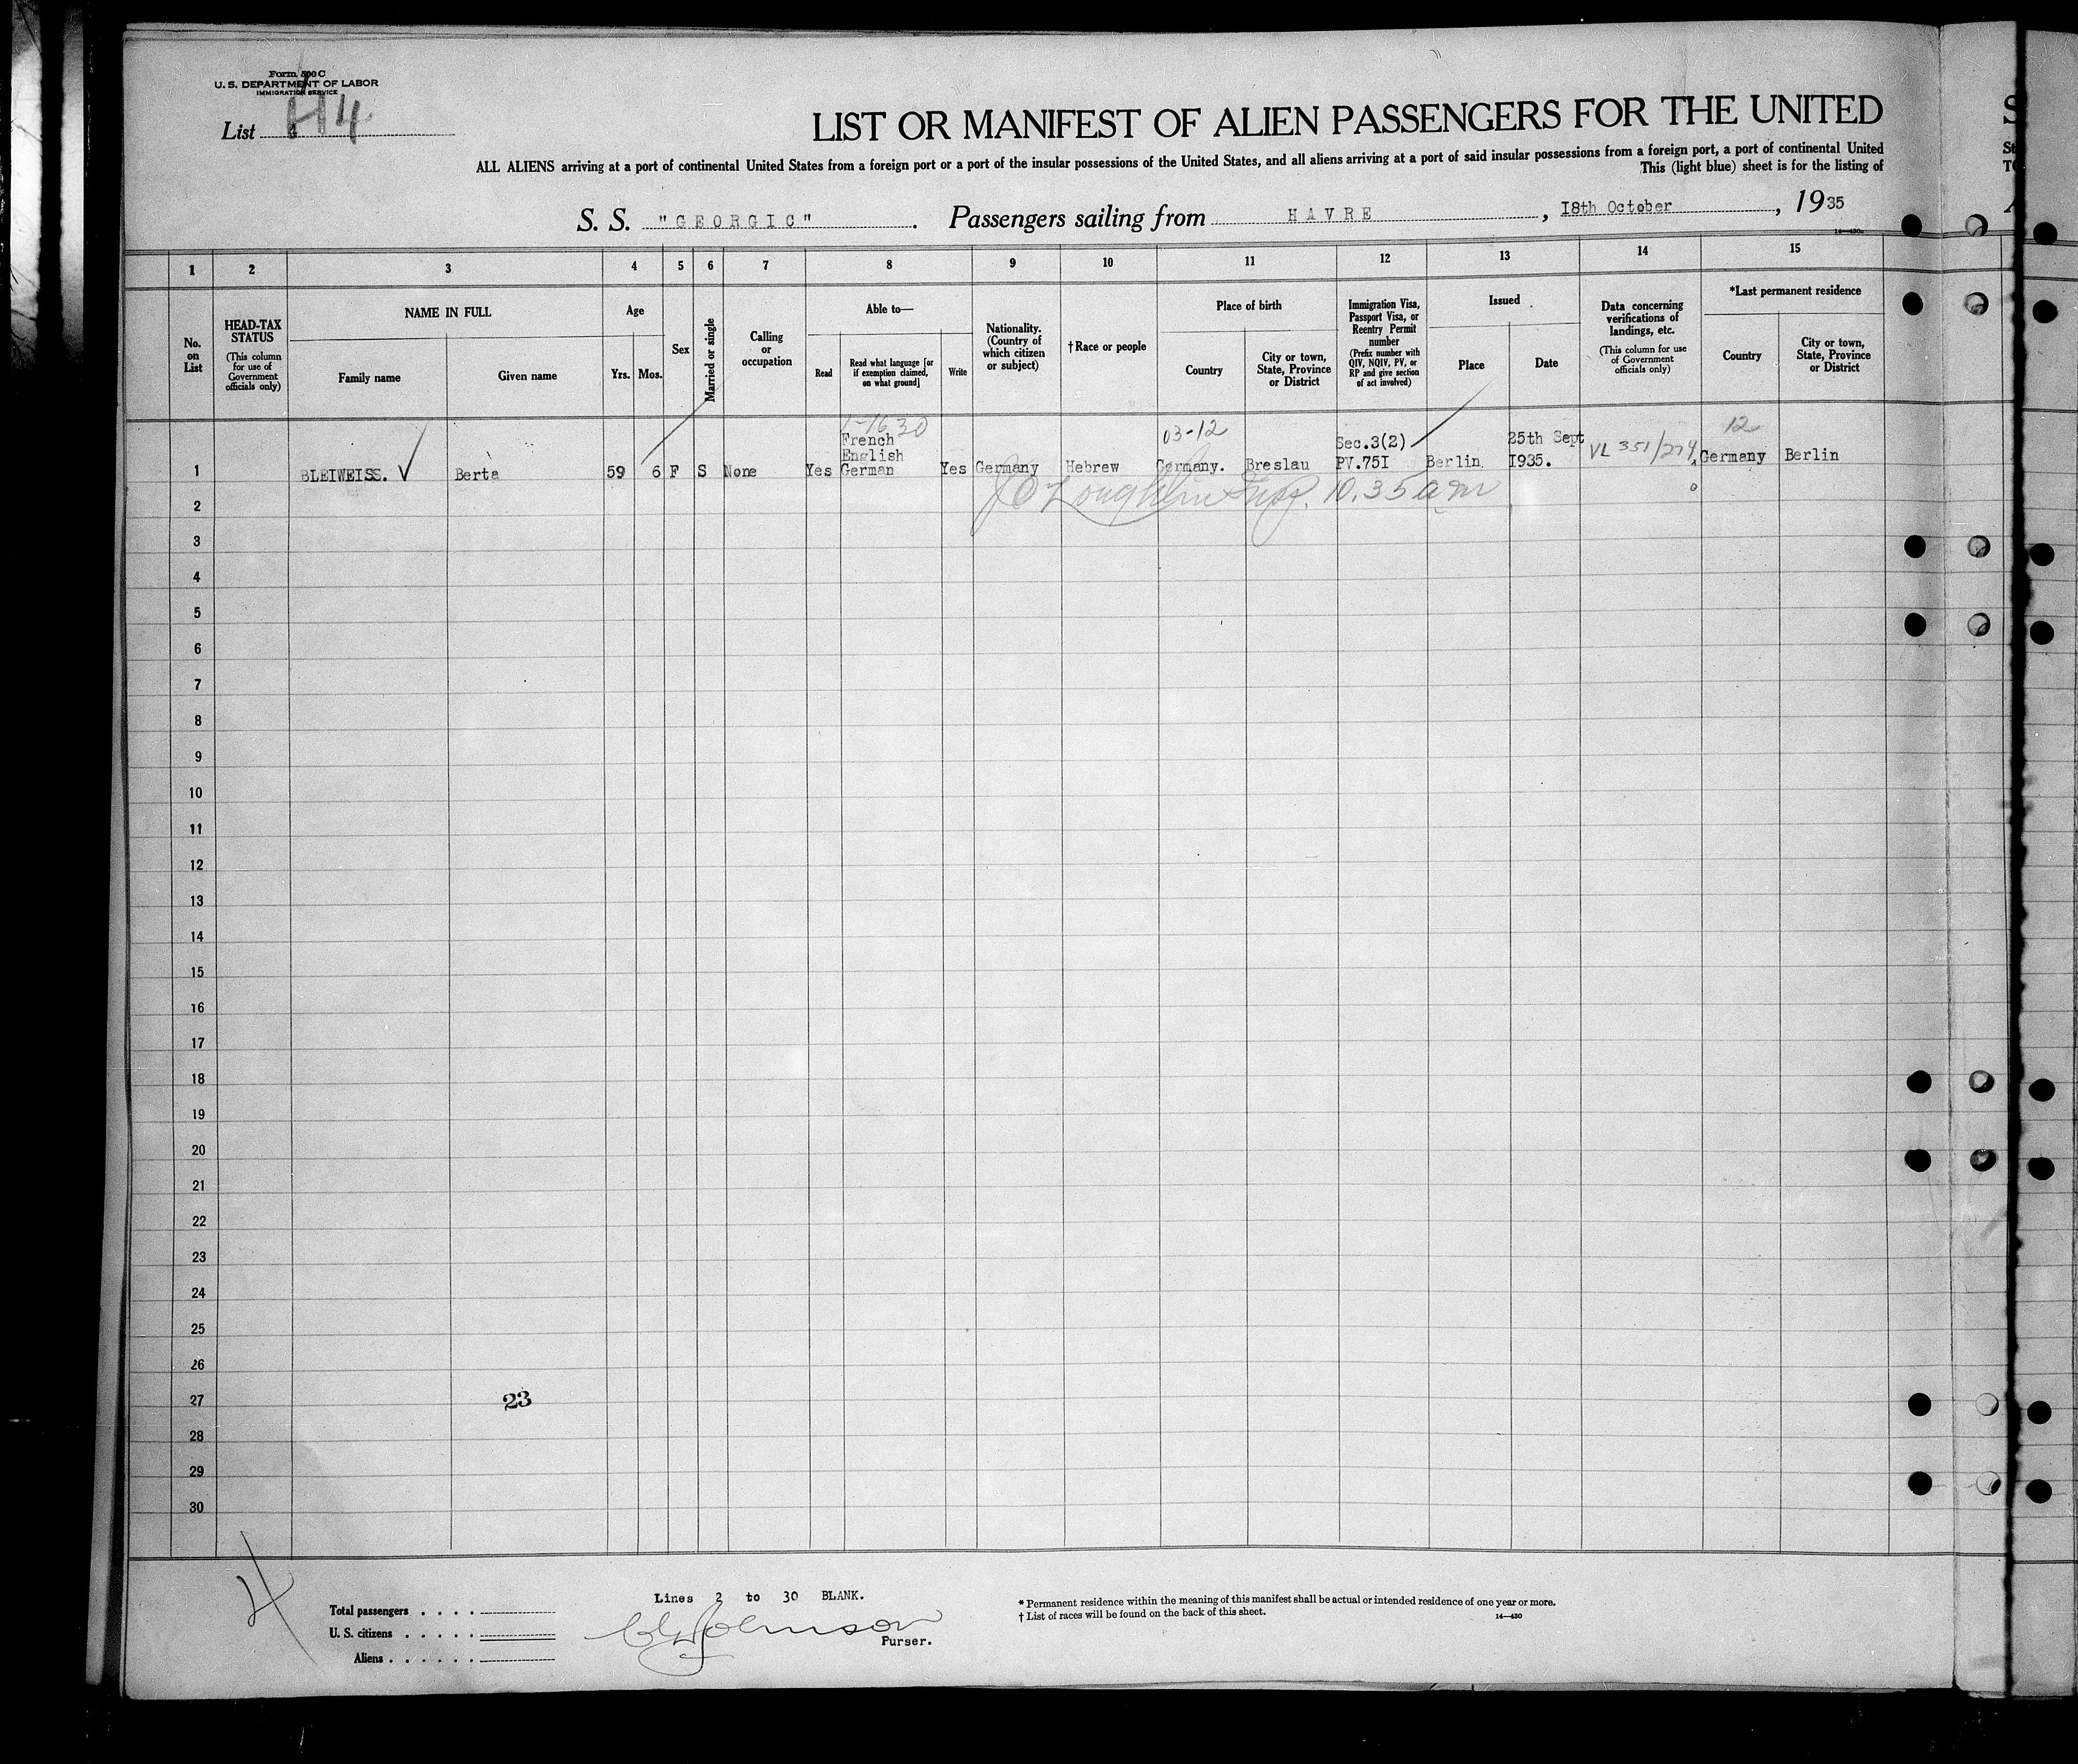 Form 500 C
U. S. DEPARTMENT OF LABOR
IMMIGRATION SERVICE
List 4
LIST OR MANIFEST OF ALIEN PASSENGERS FOR THE UNITED
ALL ALIENS arriving at a port of continental United States from a foreign port or a port of the insular possessions of the United States, and all aliens arriving at a port of said insular possessions from a foreign port, a port of continental United
This (light blue) sheet is for the listing of
S. S. "GEORGIC". Passengers sailing from HAVRE, I8th October, 1935
1 2 3 4 5 6 7 8 9 10 11 12 13 14 15
No. on List
HEAD-TAX STATUS
(This column for use of Government officials only)
NAME IN FULL
Family name
Given name
Age
Yrs. Mos.
Sex
Married or single
Calling or occupation
Able to—
Read
Read what language [or if exemption claimed, on what ground]
Write
Nationality. (Country of which citizen or subject)
†Race or people
Place of birth
Country
City or town, State, Province or District
Immigration Visa, Passport Visa, or Reentry Permit number
(Prefix number with QIV, NQIV, PV, or RP and give section of act involved)
Issued
Place
Date
Data concerning verifications of landings, etc.
(This column for use of Government officials only)
*Last permanent residence
Country
City or town, State, Province or District
03-12
12
1 BLEIWEISS. √ Berta 59 6 F S None Yes French English German Yes Germany Hebrew Germany. Breslau Sec.3(2) PV.75I Berlin 25th Sept I935. VL 351/274 Germany Berlin
10.35 am
2
3
4
5
6
7
8
9
10
11
12
13
14
15
16
17
18
19
20
21
22
23
24
25
26
27
23
28
29
30
4
Total passengers
U. S. citizens
Aliens
Lines 2 to 30 BLANK.
Johnson
Purser.
* Permanent residence within the meaning of this manifest shall be actual or intended residence of one year or more.
† List of races will be found on the back of this sheet.
14—430